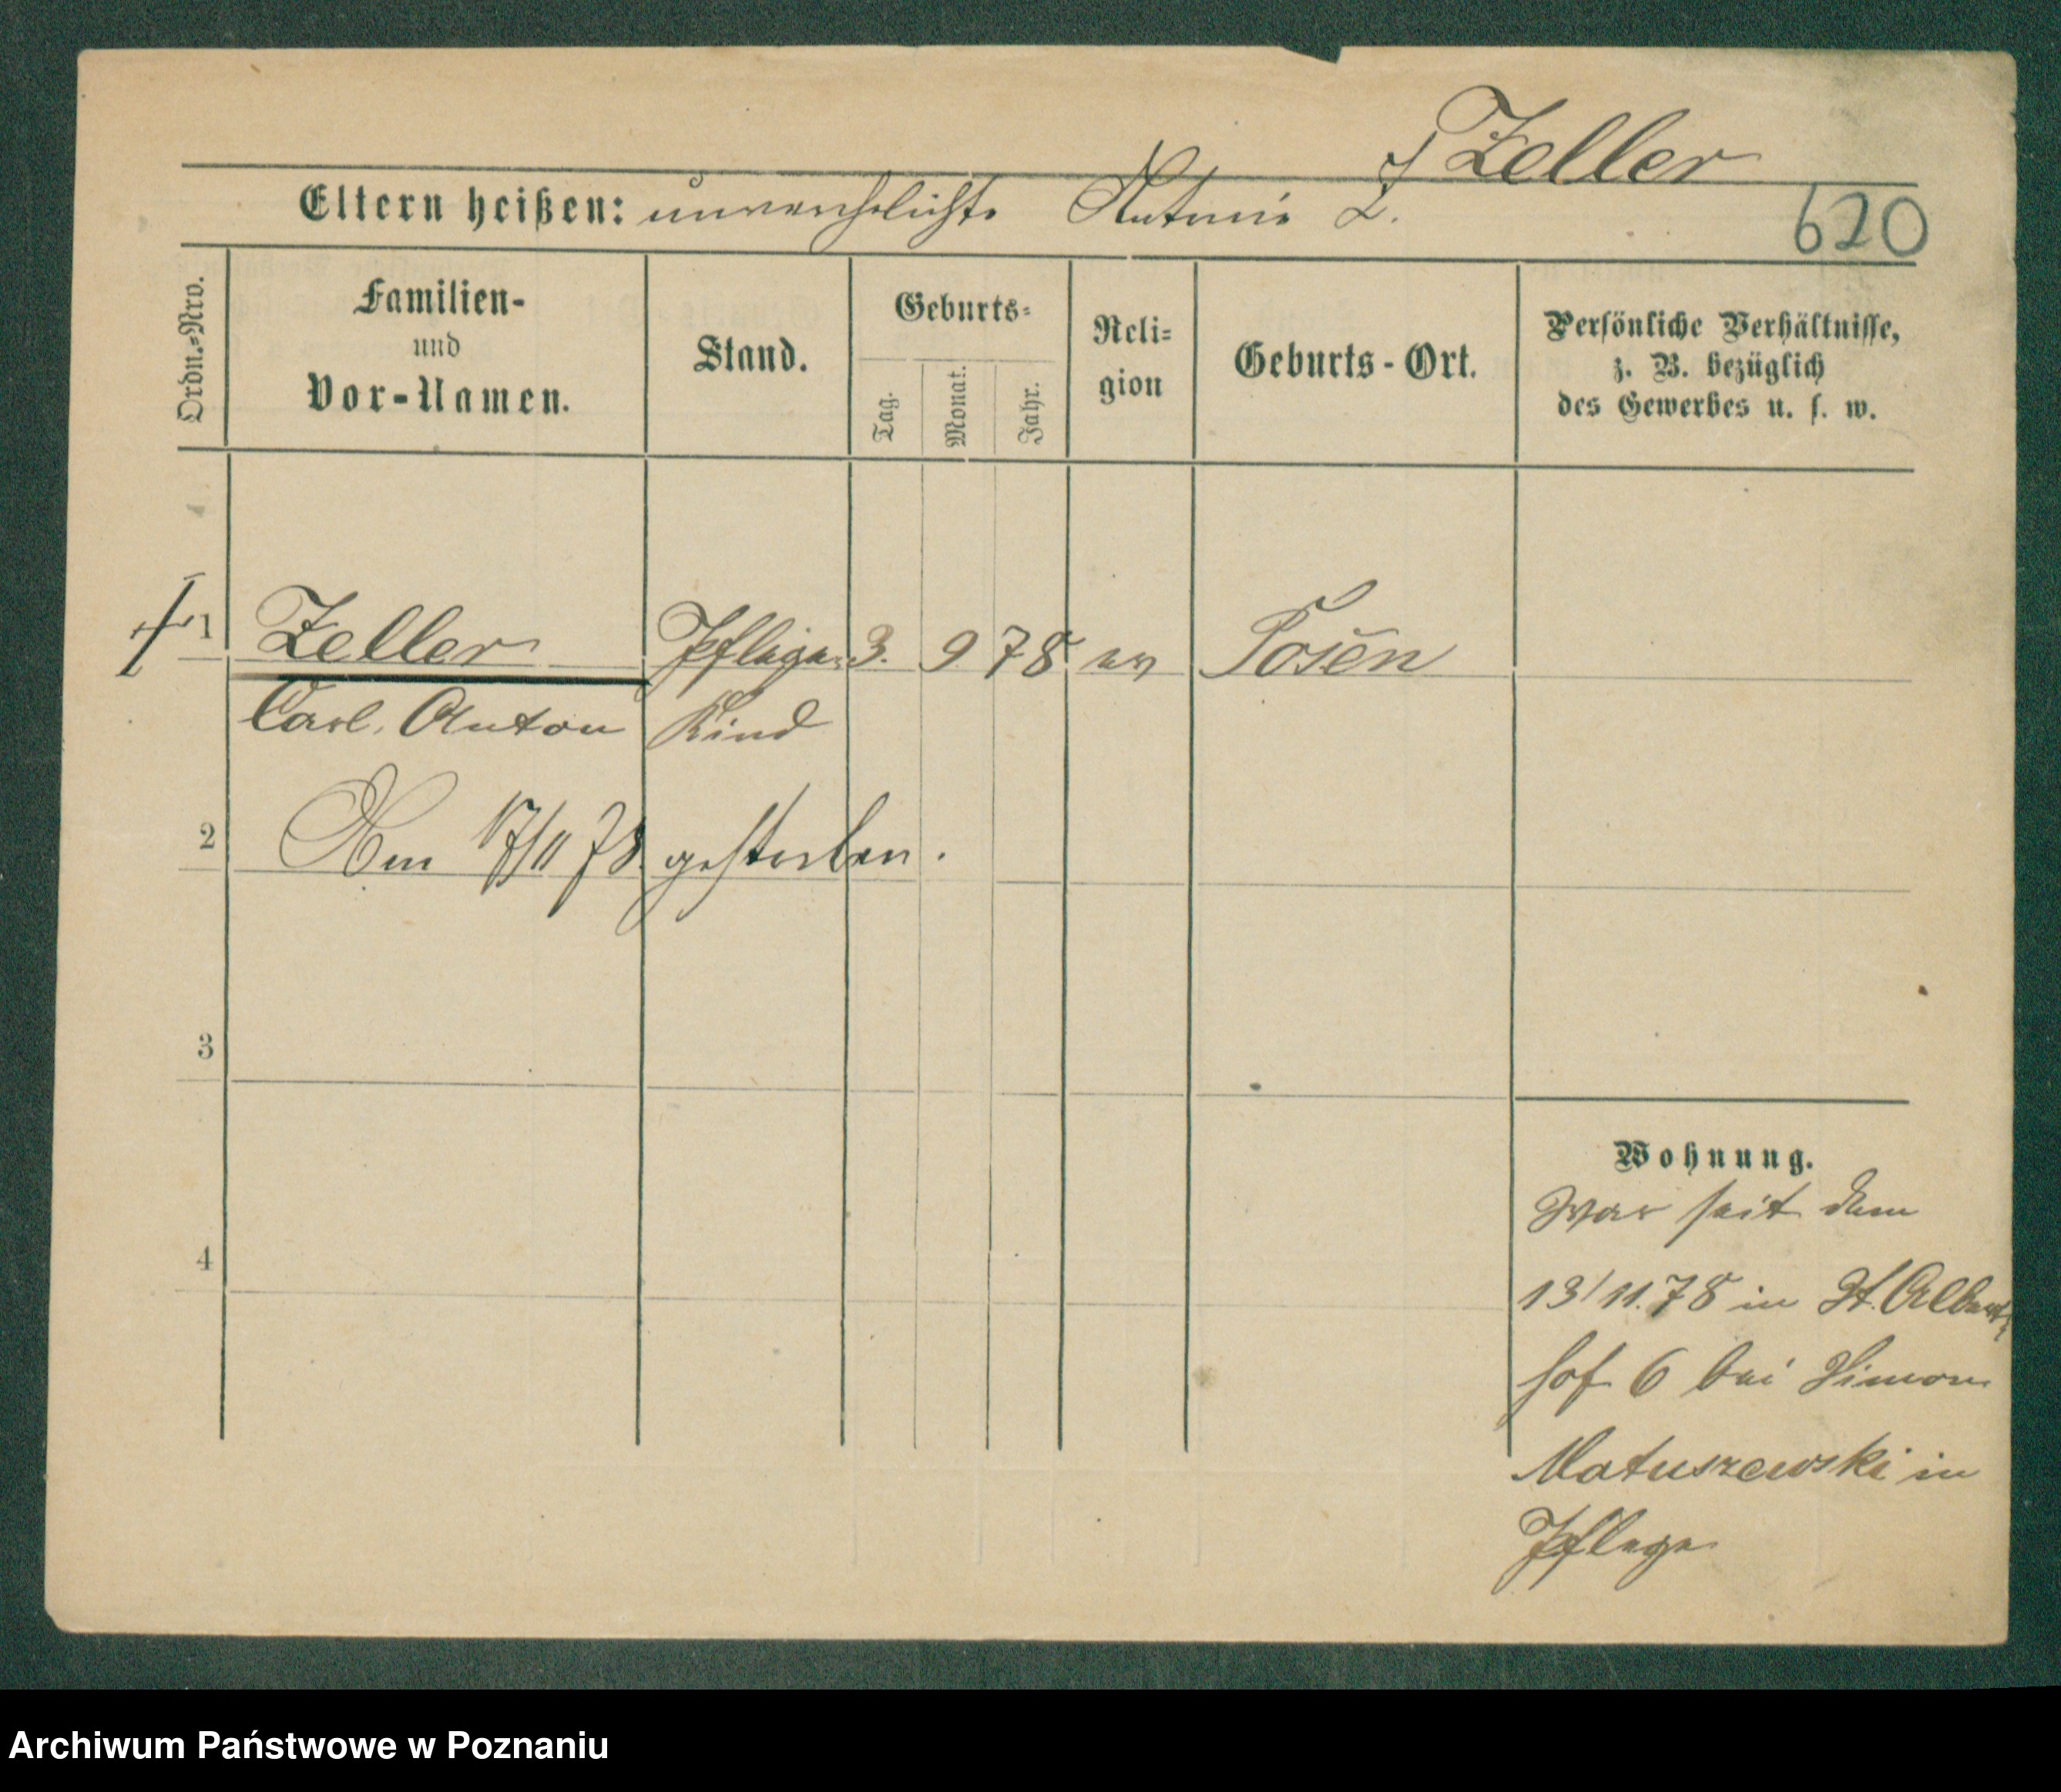 Zeller
Eltern heißen: unverehelichte Antonie Z.
620
Ordn.-Nro.
Familien-
und
Vor-Namen.
Stand.
Geburts-
Tag.
Monat.
Jahr.
Reli-
gion
Geburts-Ort.
Persönliche Verhältnisse,
z. B. bezüglich
des Gewerbes u. s. w.
1 Zeller Pflege- 3. 9 78 ev Posen
Carl. Anton Kind
2 Am 17/11 78. gestorben.
3
4
Wohnung.
War seit dem
13/11.78 in St. Adalbert
hof 6 bei Simon
Matuszewski in
Pflege
Archiwum Państwowe w Poznaniu